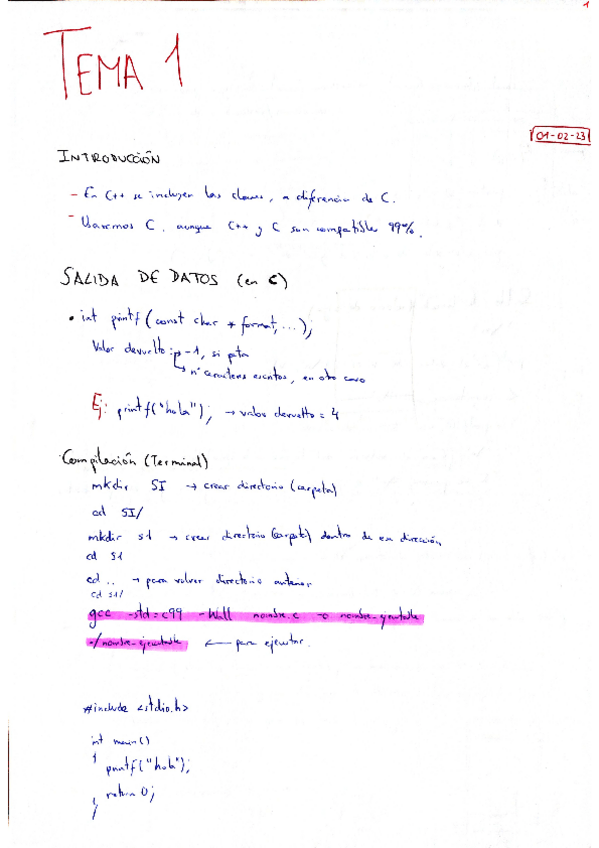 1
TEMA 1
01-02-23
INTRODUCCIÓN
- En C++ se incluyen las clases, a diferencia de C.
- Usaremos C, aunque C++ y C son compatible 99%.
SALIDA DE DATOS (en C)
• int printf (const char * format, ...);
Valor devuelto: -1, si peta
nº caracteres escritos, en otro caso
Ej: printf("hola"); → valor devuelto = 4
Compilación (Terminal)
mkdir SI → crear directorio (carpeta)
cd SI/
mkdir s1 → crear directorio (carpeta) dentro de esa dirección
cd S1
cd .. → para volver directorio anterior
cd s1/
gcc -std=c99 -Wall nombre.c -o nombre_ejecutable
./nombre_ejecutable ← para ejecutar.
#include <stdio.h>
int main()
{
printf("hola");
return 0;
}